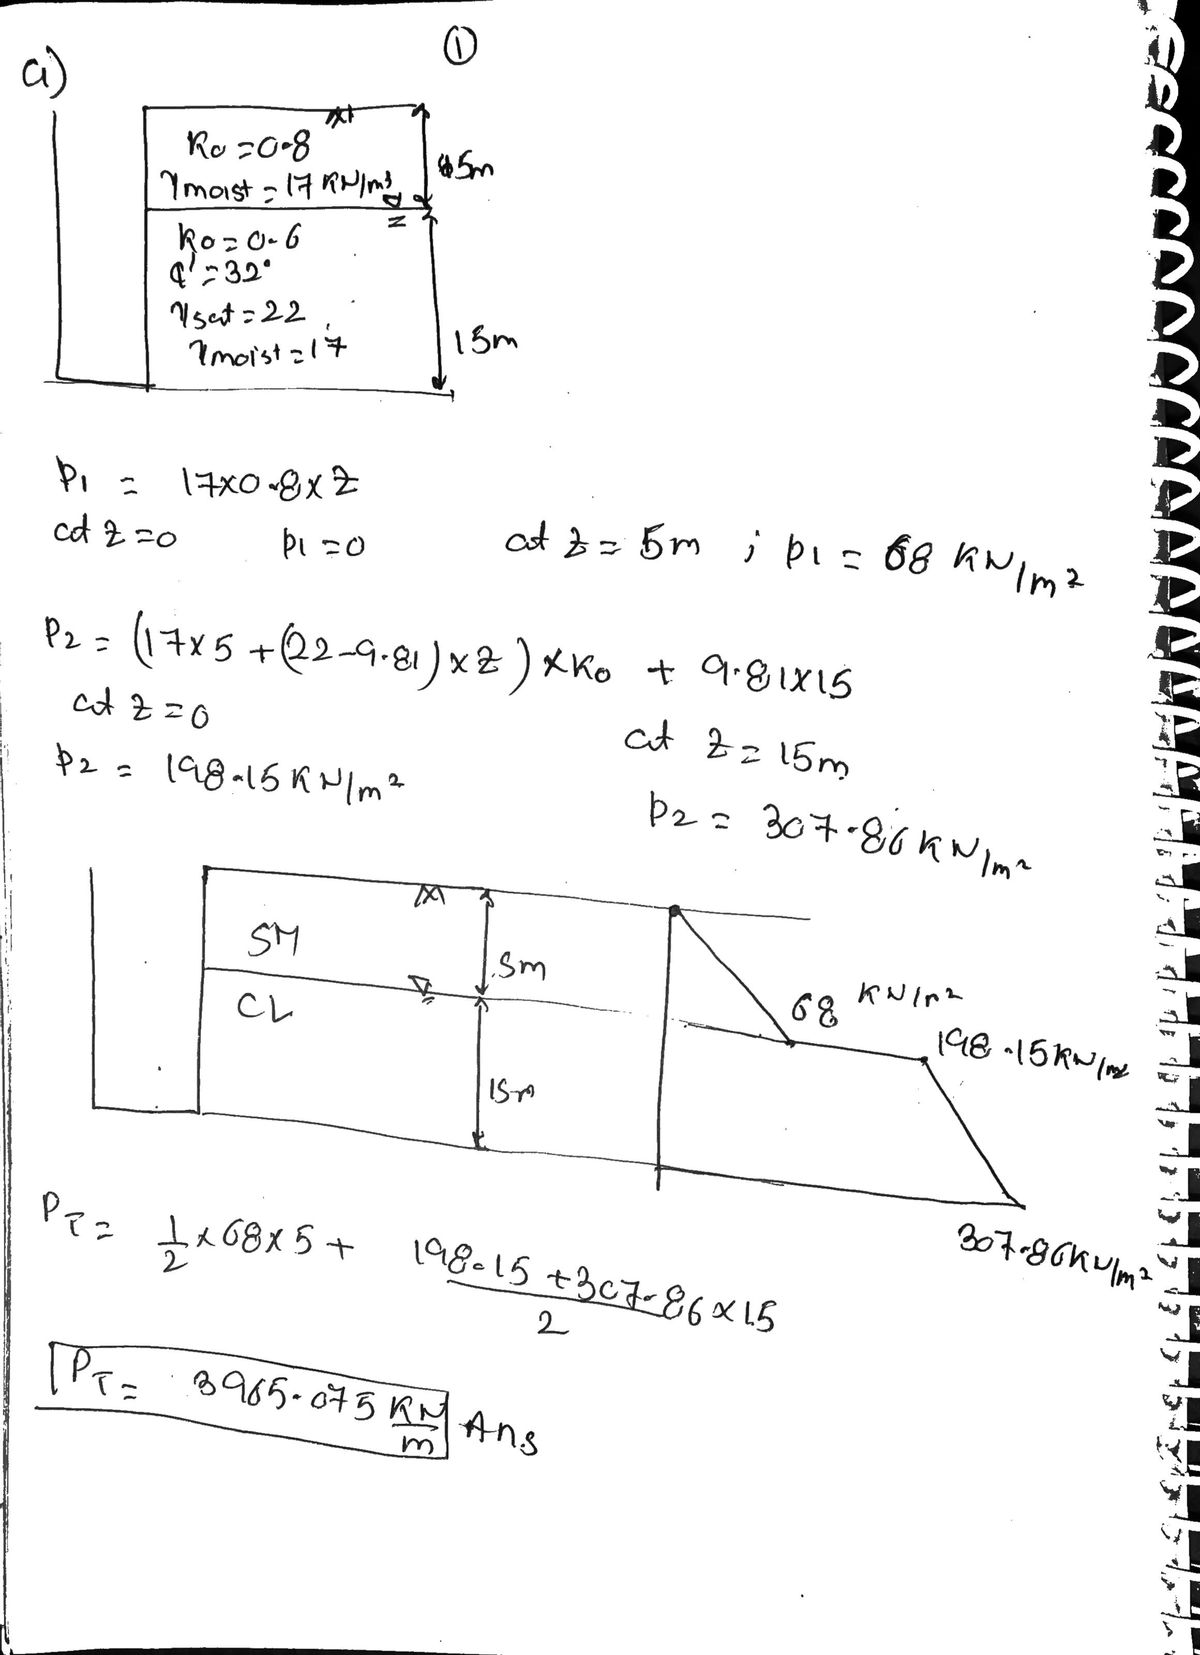 ①
a)
K₀ = 0.8
γmoist = 17 KN/m³
5m
K₀ = 0.6
φ' = 32°
γsat = 22
γmoist = 17
15m
P₁ = 17x0.8xZ
at z = 0 P₁ = 0 at z = 5m ; P₁ = 68 KN/m²
P₂ = (17x5 + (22-9.81)xZ) xK₀ + 9.81x15
at z = 0 at z = 15m
P₂ = 198.15 KN/m² P₂ = 307.86 KN/m²
SM
5m
CL
15m
68 KN/m²
198.15 KN/m²
307.86 KN/m²
P_T = 1/2 x 68 x 5 + (198.15 + 307.86)/2 x 15
P_T = 3965.075 KN/m Ans